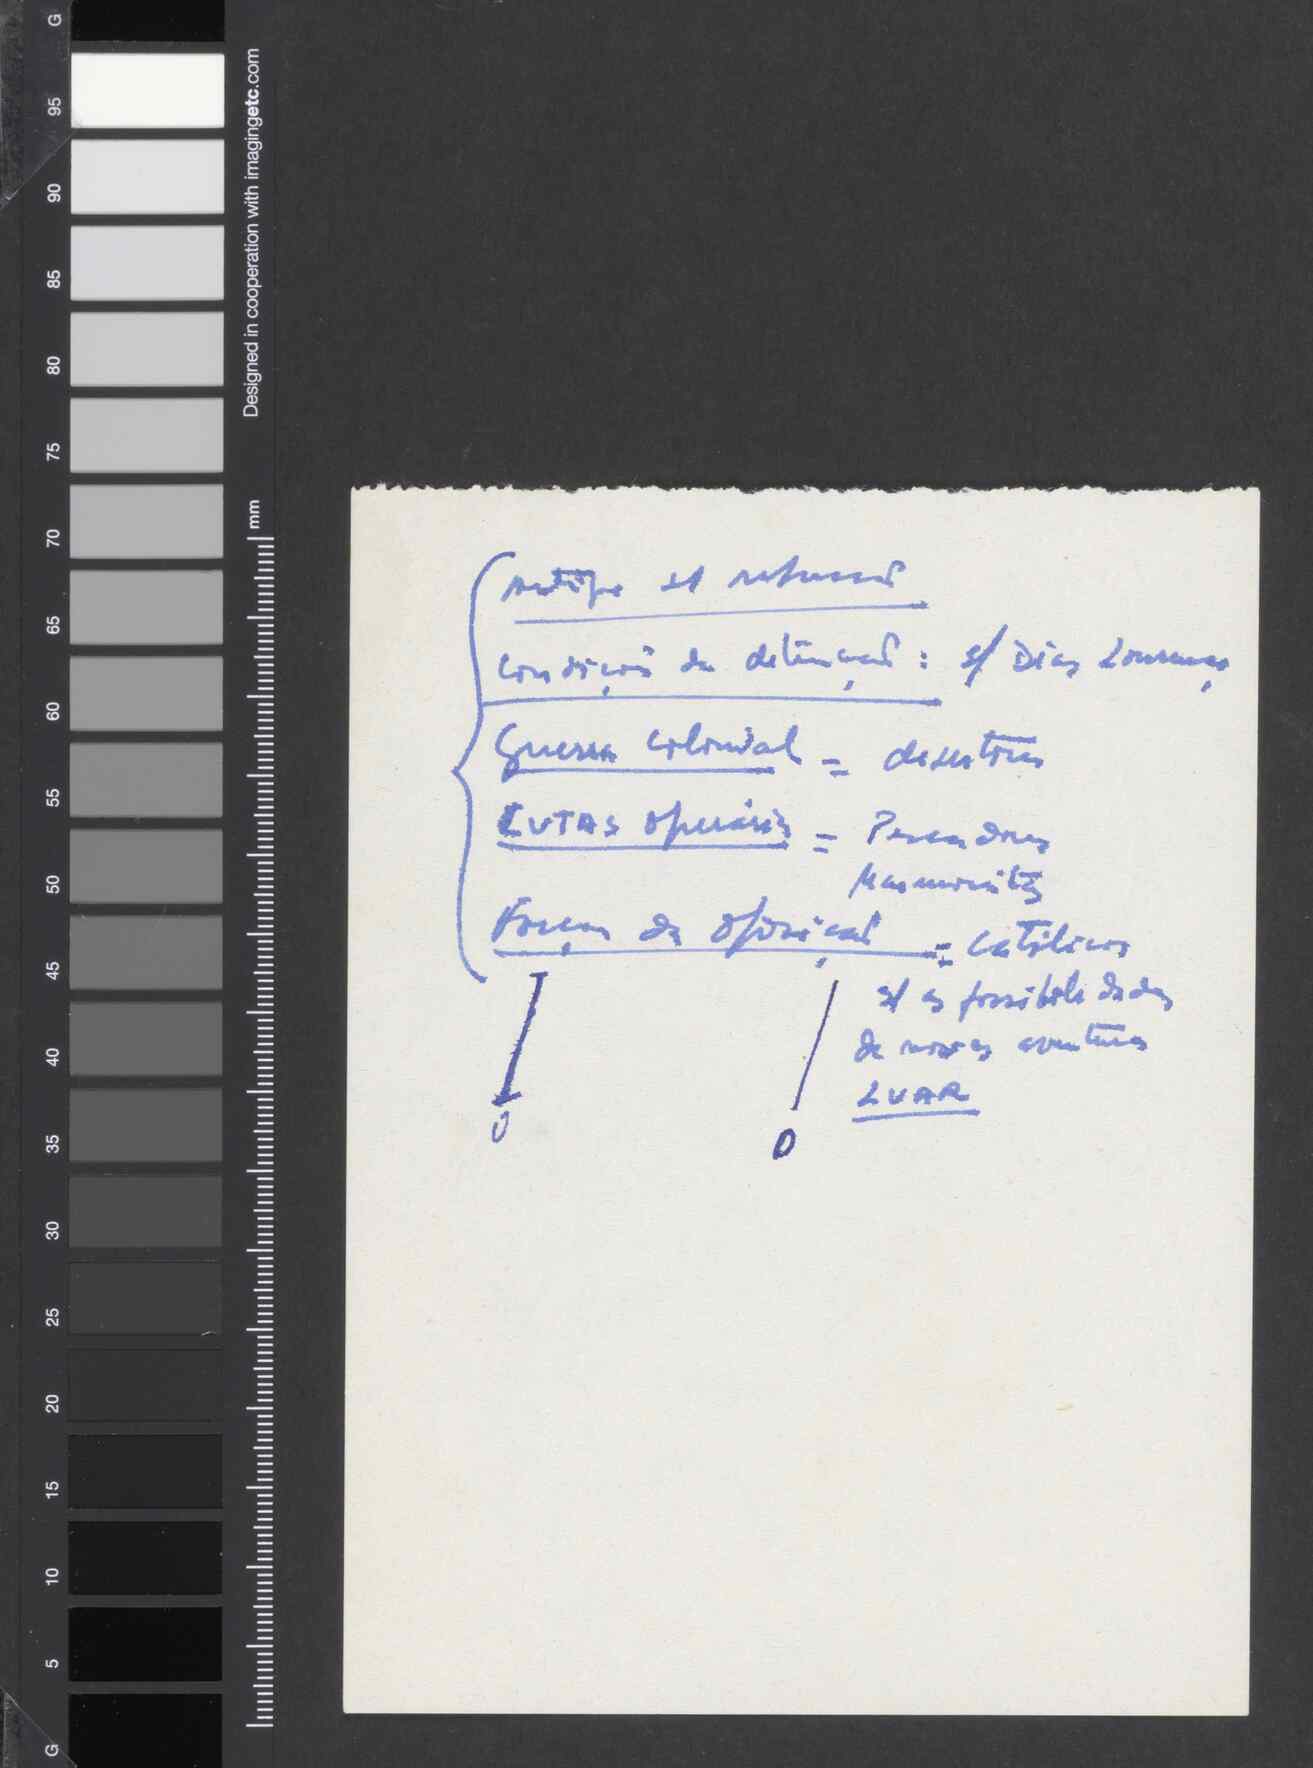 G
95
90
85
80
75
70
65
60
55
50
45
40
35
30
25
20
15
10
5
G
Designed in cooperation with imagingetc.com
mm
Artigo s/ repressão
Condições de detenção : s/ Dias Lourenço
Guerra colonial = desertores
LUTAS operárias = Pescadores
Forças da oposição = Católicos
s/ as possibilidades
de novas aventuras
LUAR